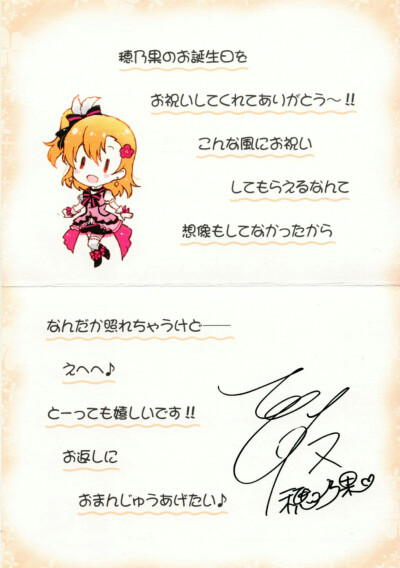 穂乃果のお誕生日を
お祝いしてくれてありがとう～!!
こんな風にお祝い
してもらえるなんて
想像もしてなかったから
なんだか照れちゃうけど──
えへへ♪
とーっても嬉しいです!!
お返しに
おまんじゅうあげたい♪
穂乃果♡